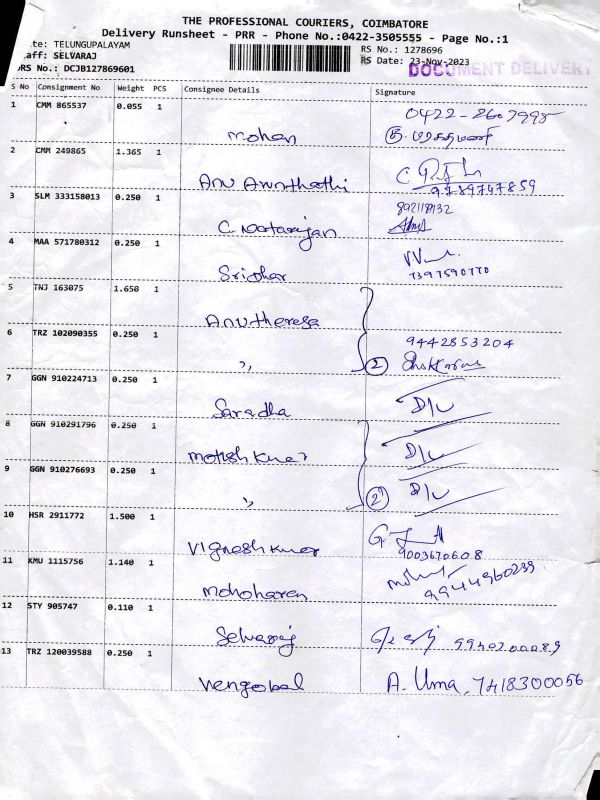 THE PROFESSIONAL COURIERS, COIMBATORE
Delivery Runsheet - PRR - Phone No.:0422-3505555 - Page No.:1
te: TELUNGUPALAYAM
RS No.: 1278696
aff: SELVARAJ
RS Date: 23-Nov-2023
RS No.: DCJB127869601
DOCUMENT DELIVERY
S No Consignment No Weight PCS Consignee Details Signature
1 CMM 865537 0.055 1 mohan 0422-2607995
2 CMM 249865 1.365 1 9789747859
3 SLM 333158013 0.250 1 C Natarajan
4 MAA 571780312 0.250 1 Sridhar 7397590770
5 TNJ 163075 1.650 1 Anutheresa
6 TRZ 102090355 0.250 1 ,, 2 9442853204
7 GGN 910224713 0.250 1 Saradha D/L
8 GGN 910291796 0.250 1 D/L
9 GGN 910276693 0.250 1 ,, 2 D/L
10 HSR 2911772 1.500 1 Vignesh Kumar 9003670608
11 KMU 1115756 1.140 1 manoharen 9944960239
12 STY 905747 0.110 1 Selvaraj
13 TRZ 120039588 0.250 1 Vengobal A. Uma, 7418300056